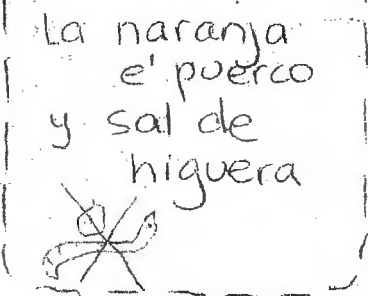 La naranja
e' puerco
y sal de
higuera